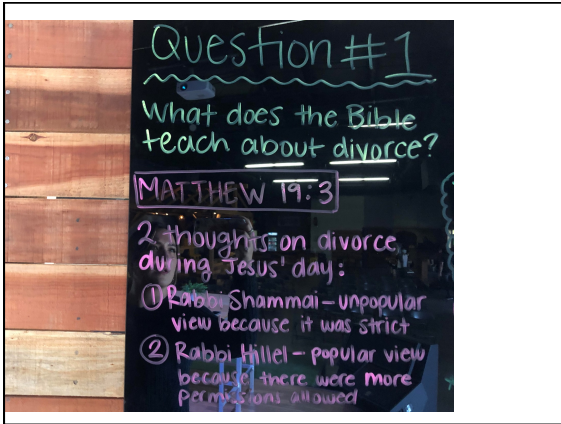 Question #1
What does the Bible
teach about divorce?
MATTHEW 19:3
2 thoughts on divorce
during Jesus' day:
① Rabbi Shammai - unpopular
view because it was strict
② Rabbi Hillel - popular view
because there were more
permissions allowed